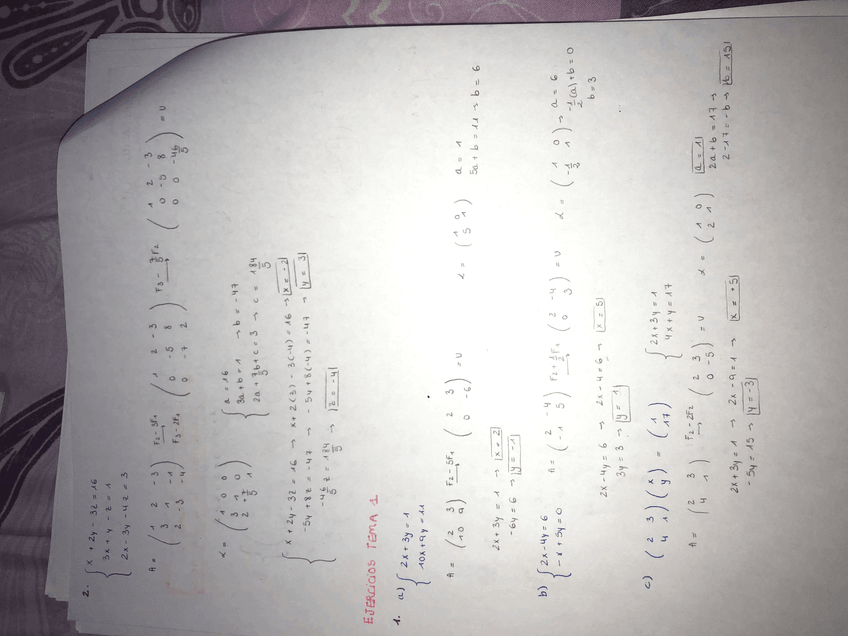 2. { x + 2y - 3z = 16
3x + y - z = 1
2x - 3y - 4z = 3
A = ( 1 2 -3 / 3 1 -1 / 2 -3 -4 ) F2-3F1 F3-2F1 → ( 1 2 -3 / 0 -5 8 / 0 -7 2 ) F3 - 7/5 F2 → ( 1 2 -3 / 0 -5 8 / 0 0 -46/5 ) = U
L = ( 1 0 0 / 3 1 0 / 2 +7/5 1 ) { a = 16
3a + b = 1 → b = -47
2a + 7/5 b + c = 3 → c = 184/5
{ x + 2y - 3z = 16 → x + 2(3) - 3(-4) = 16 → x = -2
-5y + 8z = -47 → -5y + 8(-4) = -47 → y = 3
-46/5 z = 184/5 → z = -4
EJERCICIOS TEMA 1
1. a) { 2x + 3y = 1
10x + 9y = 11
A = ( 2 3 / 10 9 ) F2-5F1 → ( 2 3 / 0 -6 ) = U L = ( 1 0 / 5 1 ) a = 1
5a + b = 11 → b = 6
2x + 3y = 1 → x = 2
-6y = 6 → y = -1
b) { 2x - 4y = 6
-x + 5y = 0
A = ( 2 -4 / -1 5 ) F2 + 1/2 F1 → ( 2 -4 / 0 3 ) = U L = ( 1 0 / -1/2 1 ) → a = 6
-1/2 (a) + b = 0
b = 3
2x - 4y = 6 → 2x - 4 = 6 → x = 5
3y = 3 → y = 1
c) ( 2 3 / 4 1 ) ( x / y ) = ( 1 / 17 ) { 2x + 3y = 1
4x + y = 17
A = ( 2 3 / 4 1 ) F2-2F2 → ( 2 3 / 0 -5 ) = U L = ( 1 0 / 2 1 ) a = 1
2a + b = 17 →
2 - 17 = -b → b = 15
2x + 3y = 1 → 2x - 9 = 1 → x = +5
-5y = 15 → y = -3